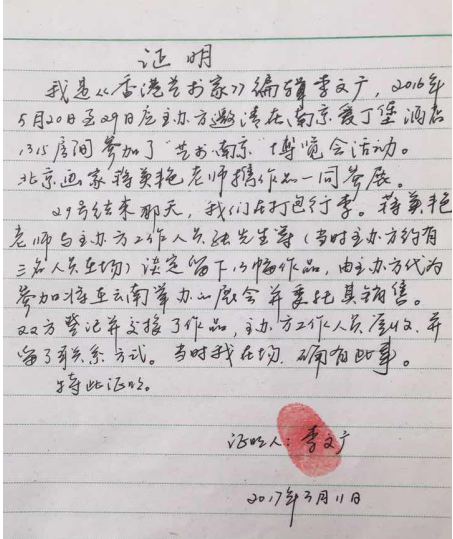 证明
我是《香港艺术家》编辑李文广，2016年
5月20日至29日应主办方邀请在南京爱丁堡酒店
1315房间参加了“艺术南京”博览会活动。
北京画家蒋英艳老师携作品一同参展。
29号结束那天，我们在打包行李。蒋英艳
老师与主办方工作人员张先生等（当时主办方约有
三名人员在场）决定留下13幅作品，由主办方代为
参加将在云南举办的展会并委托其销售。
双方登记并交接了作品，主办方工作人员签收，并
留了联系方式。当时我在场，确有此事。
特此证明。
证明人：李文广
2017年3月11日